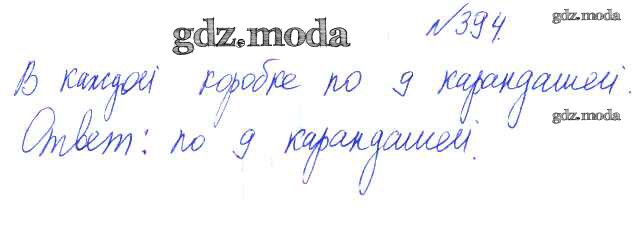 gdz.moda №394. gdz.moda
В каждой коробке по 9 карандашей.
gdz.moda
Ответ: по 9 карандашей.